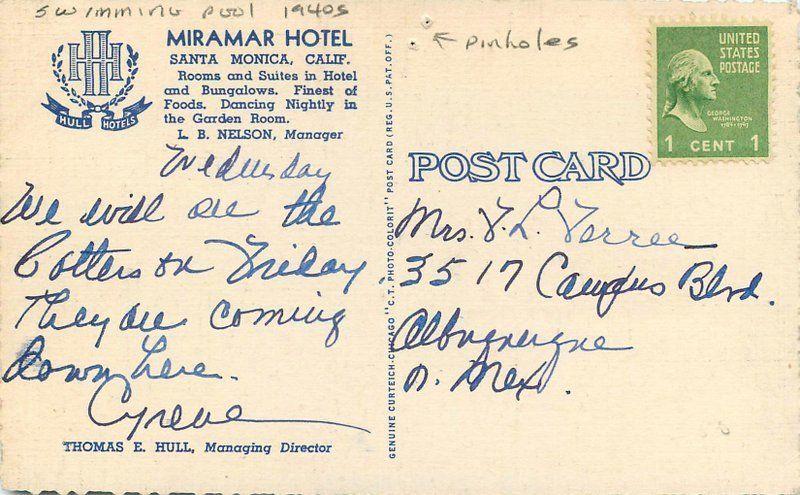 swimming pool 1940s
← pinholes
HHH
HULL HOTELS
MIRAMAR HOTEL
SANTA MONICA, CALIF.
Rooms and Suites in Hotel
and Bungalows. Finest of
Foods. Dancing Nightly in
the Garden Room.
L. B. NELSON, Manager
Wednesday
We will see the
Cotters on Friday
They are coming
down here.
Cyrene
THOMAS E. HULL, Managing Director
GENUINE CURTEICH-CHICAGO "C.T. PHOTO-COLORIT" POST CARD (REG. U.S. PAT. OFF.)
UNITED
STATES
POSTAGE
GEORGE
WASHINGTON
1789-1797
1 CENT 1
POST CARD
Mrs. V. L. Verree
3517 Campus Blvd.
Albuquerque
N. Mex.